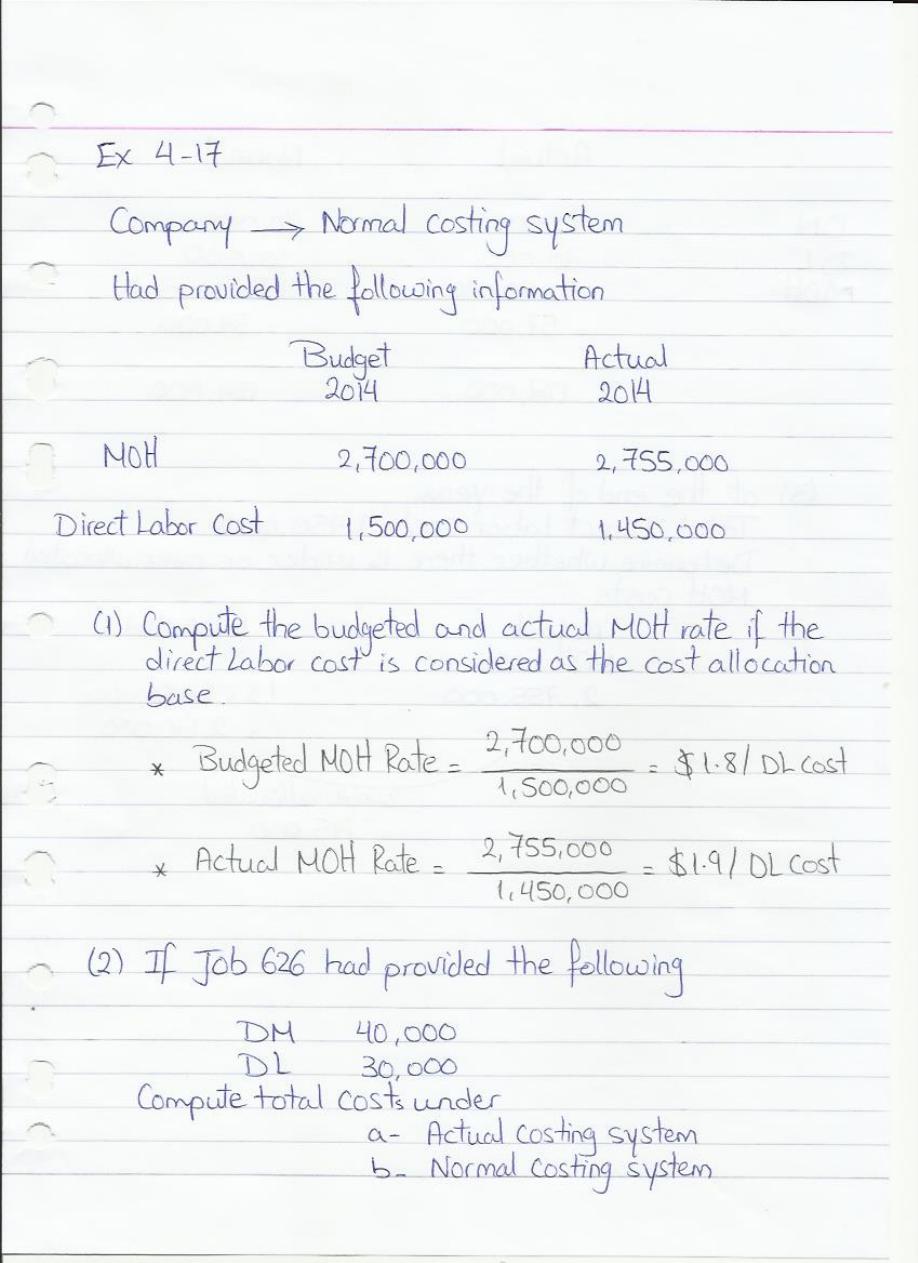 Ex 4-17
Company → Normal costing system
Had provided the following information
Budget Actual
2014 2014
MOH 2,700,000 2,755,000
Direct Labor Cost 1,500,000 1,450,000
(1) Compute the budgeted and actual MOH rate if the
direct Labor cost is considered as the cost allocation
base.
* Budgeted MOH Rate = 2,700,000 / 1,500,000 = $1.8/ DL Cost
* Actual MOH Rate = 2,755,000 / 1,450,000 = $1.9/ DL Cost
(2) If Job 626 had provided the following
DM 40,000
DL 30,000
Compute total costs under
a- Actual Costing system
b- Normal Costing system